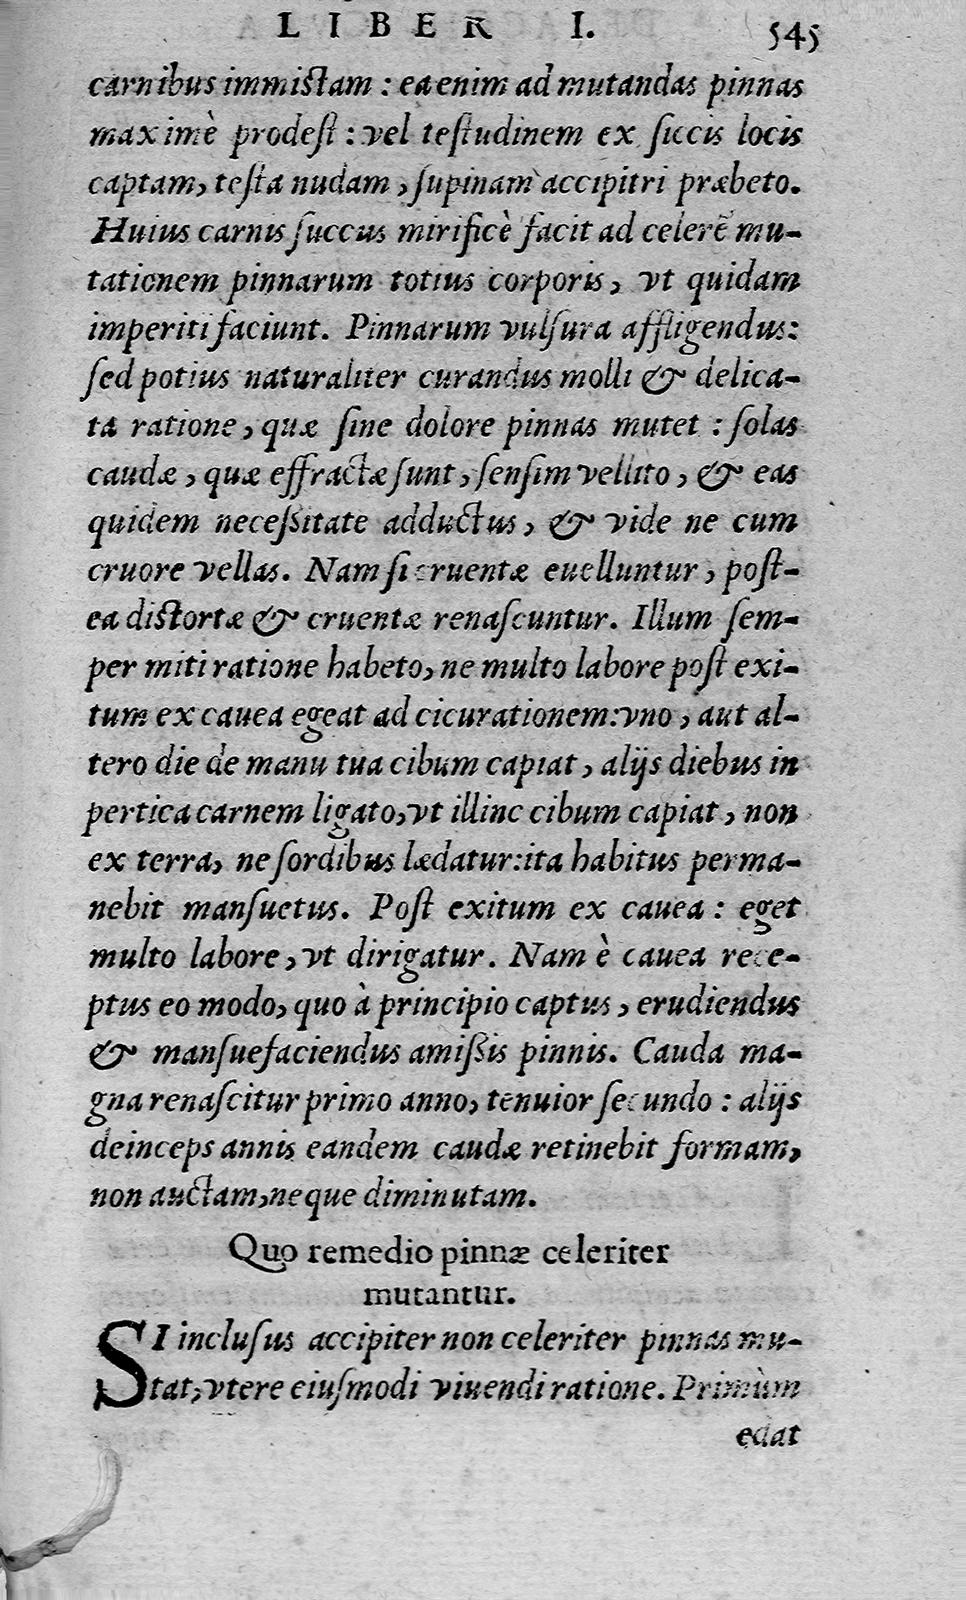 LIBER I. 545
carnibus immistam : ea enim ad mutandas pinnas
maximè prodest : vel testudinem ex siccis locis
captam, testa nudam, supinam accipitri præbeto.
Huius carnis succus mirificè facit ad celerẽ mu-
tationem pinnarum totius corporis, vt quidam
imperiti faciunt. Pinnarum vulsura affligendus:
sed potius naturaliter curandus molli & delica-
ta ratione, quæ sine dolore pinnas mutet : solas
caudæ, quæ effractæ sunt, sensim vellito, & eas
quidem necessitate adductus, & vide ne cum
cruore vellas. Nam si cruentæ euelluntur, post-
ea distortæ & cruentæ renascuntur. Illum sem-
per miti ratione habeto, ne multo labore post exi-
tum ex cauea egeat ad cicurationem: vno, aut al-
tero die de manu tua cibum capiat, alijs diebus in
pertica carnem ligato, vt illinc cibum capiat, non
ex terra, ne sordibus lædatur: ita habitus perma-
nebit mansuetus. Post exitum ex cauea : eget
multo labore, vt dirigatur. Nam è cauea rece-
ptus eo modo, quo à principio captus, erudiendus
& mansuefaciendus amissis pinnis. Cauda ma-
gna renascitur primo anno, tenuior secundo : alijs
deinceps annis eandem caudæ retinebit formam,
non auctam, neque diminutam.
Quo remedio pinnæ celeriter
mutantur.
SI inclusus accipiter non celeriter pinnas mu-
tat, vtere eiusmodi viuendi ratione. Primùm
edat